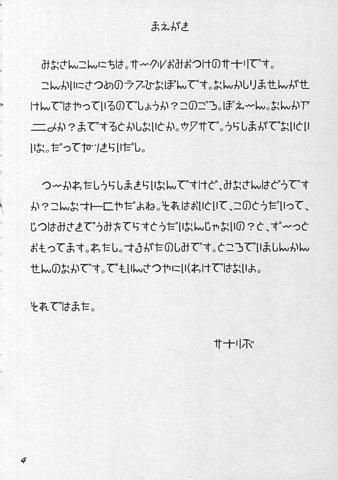 まえがき
みなさんこんにちは。サークルおみおつけのサナリです。
こんかいにさつめのラブひなぼんです。なんかしりませんがせ
けんではやっているのでしょうか？このごろ。ぽえ〜ん。なんかア
ニメか？までするとかしないとか。ウワサで。うらしまがでないとい
いな。だってヤツきらいだし。
つ〜かわたしうらしまきらいなんですけど、みなさんはどうです
か？こんなオトコやだよね。それはおいといて、このとうだいって、
じつはみさきでうみをてらすとうだいなんじゃないの？と、ず〜っと
おもってます。わたし。オチがたのしみです。ところでいましんかん
せんのなかです。でもいんさつやにいくわけではないよ。
それではまた。
サナリポ
4